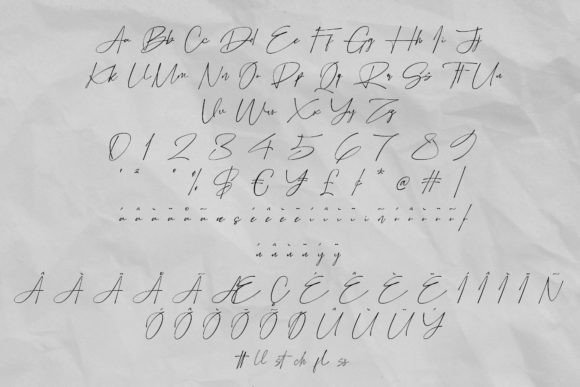 Aa Bb Cc Dd Ee Ff Gg Hh Ii Jj
Kk Ll Mm Nn Oo Pp Qq Rr Ss Tt Uu
Vv Ww Xx Yy Zz
0 1 2 3 4 5 6 7 8 9
% $ € ¥ £ ¢ * @ # /
ú ù û ü ý ÿ
Â À Á Å Ä Ã Æ Ç É Ê È Ë Í Î Ì Ï Ñ
Ó Ô Ò Ö Õ Ø Ú Û Ù Ü Ý
tt ll st ch fl ss